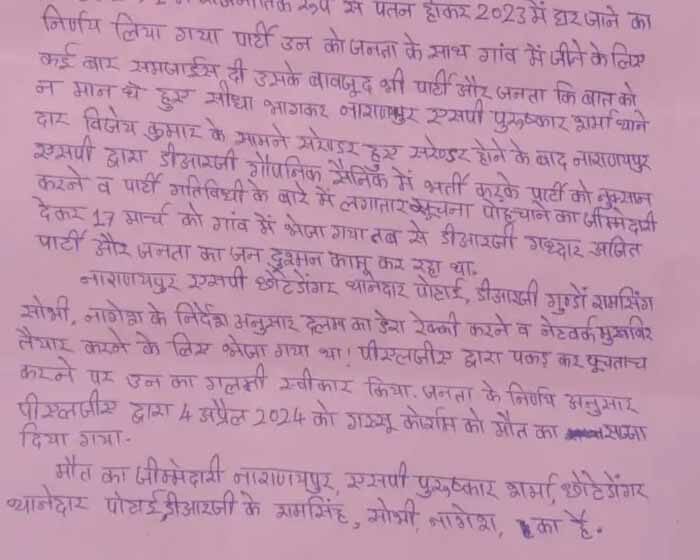 राजनीतिक रूप से पतन होकर 2023 में घर जाने का
निर्णय लिया गया पार्टी उन को जनता के साथ गांव में जीने के लिए
कई बार समजाईस दी उसके बावजूद भी पार्टी और जनता कि बात को
न मान थे हुए सीधा भागकर नारायणपुर एसपी पुरुष्कार शर्मा थाने
दार विजेय कुमार के सामने सरेण्डर हुए सरेण्डर होने के बाद नारायणपुर
एसपी द्वारा डीआरजी गौपनिक सैनिक में भर्ती करके पार्टी को नुक्सान
करने व पार्टी गतिविधी के बारे में लगातार सूचना पोहचाने का जीम्मेदारी
देकर 17 मार्च को गांव में भेजा गया तब से डीआरजी गध्दार अजित
पार्टी और जनता का जन दुश्मन काम कर रहा था.
नारायणपुर एसपी छोटेडोंगर थानेदार पोटाई, डीआरजी गुन्डों रामसिंग
सोभी, नागेश के निर्देश अनुसार दलम का डेरा रेक्की करने व नेटवर्क मुखबिर
तैयार करने के लिए भेजा गया था! पीएलजीए द्वारा पकड़ कर पूचताच
करने पर उन का गलती स्वीकार किया. जनता के निर्णय अनुसार
पीएलजीए द्वारा 4 अप्रैल 2024 को गस्सू कोर्राम को मौत का सज्जा
दिया गया.
मौत का जीम्मेदारी नारायणपुर, एसपी पुरुष्कार शर्मा, छोटेडोंगर
थानेदार पोटाई, डीआरजी के रामसिंह, सोभी, नागेश, का है.